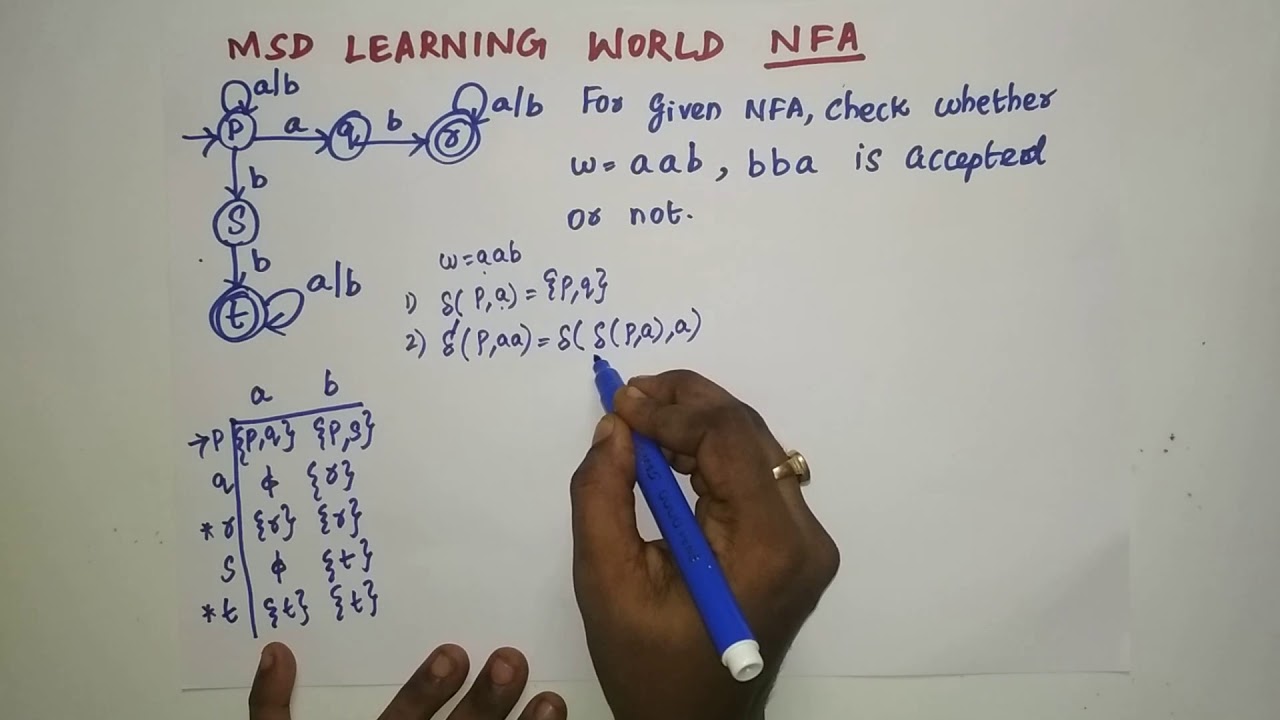 MSD LEARNING WORLD NFA
a/b
a/b
p a q b r
b
S
b
t a/b
For given NFA, check whether
w= aab, bba is accepted
or not.
w=aab
1) δ(p,a) = {p,q}
2) δ'(p,aa) = δ( δ(p,a),a)
a b
→p {p,q} {p,s}
q ϕ {r}
*r {r} {r}
s ϕ {t}
*t {t} {t}